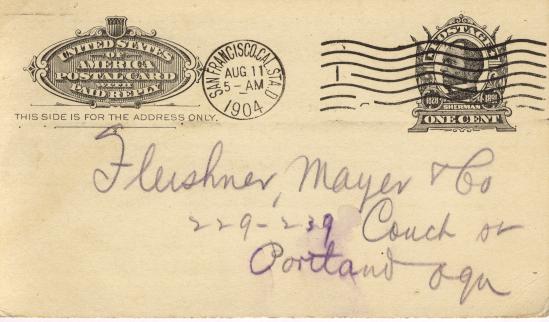 UNITED STATES OF
AMERICA
POSTAL CARD
WITH
PAID REPLY
THIS SIDE IS FOR THE ADDRESS ONLY.
SAN FRANCISCO, CAL. STA. D
AUG 11
5-AM
1904
1
POSTAGE
SHERMAN
ONE CENT
Fleishner, Mayer & Co
229-239 Couch St
Portland Ogn